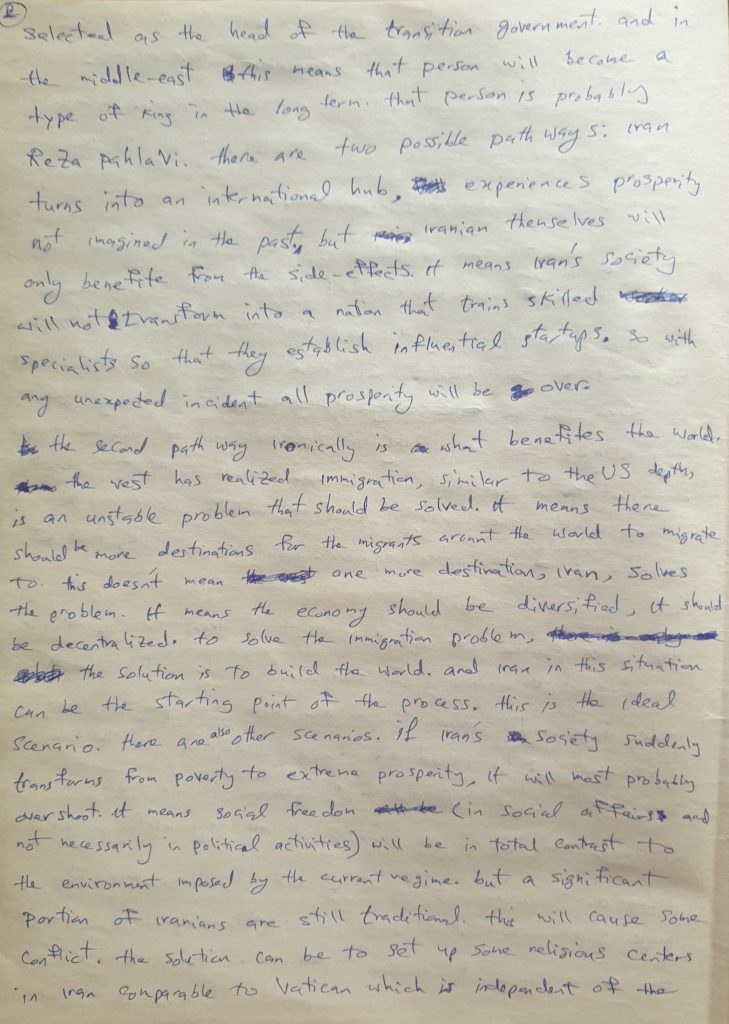 2
selected as the head of the transition government. and in
the middle-east this means that person will become a
type of king in the long term. that person is probably
Reza pahlavi. there are two possible path ways: iran
turns into an international hub, experiences prosperity
not imagined in the past, but iranian themselves will
only benefite from the side-effects. it means iran's society
will not transform into a nation that trains skilled
specialists so that they establish influential startups. so with
any unexpected incident all prosperity will be over.
the second path way ironically is what benefites the world.
the west has realized immigration, similar to the US depth,
is an unstable problem that should be solved. it means there
should be more destinations for the migrants arount the world to migrate
to. this doesn't mean one more destination, iran, solves
the problem. it means the economy should be diversified, it should
be decentralized. to solve the immigration problem,
the solution is to build the world. and iran in this situation
can be the starting point of the process. this is the ideal
scenario. there are also other scenarios. if iran's society suddenly
transforms from poverty to extreme prosperity, it will most probably
overshoot. it means social freedom (in social affairs and
not necessarily in political activities) will be in total contrast to
the environment imposed by the current regime. but a significant
portion of iranians are still traditional. this will cause some
conflict. the solution can be to set up some religious centers
in iran comparable to Vatican which is independent of the